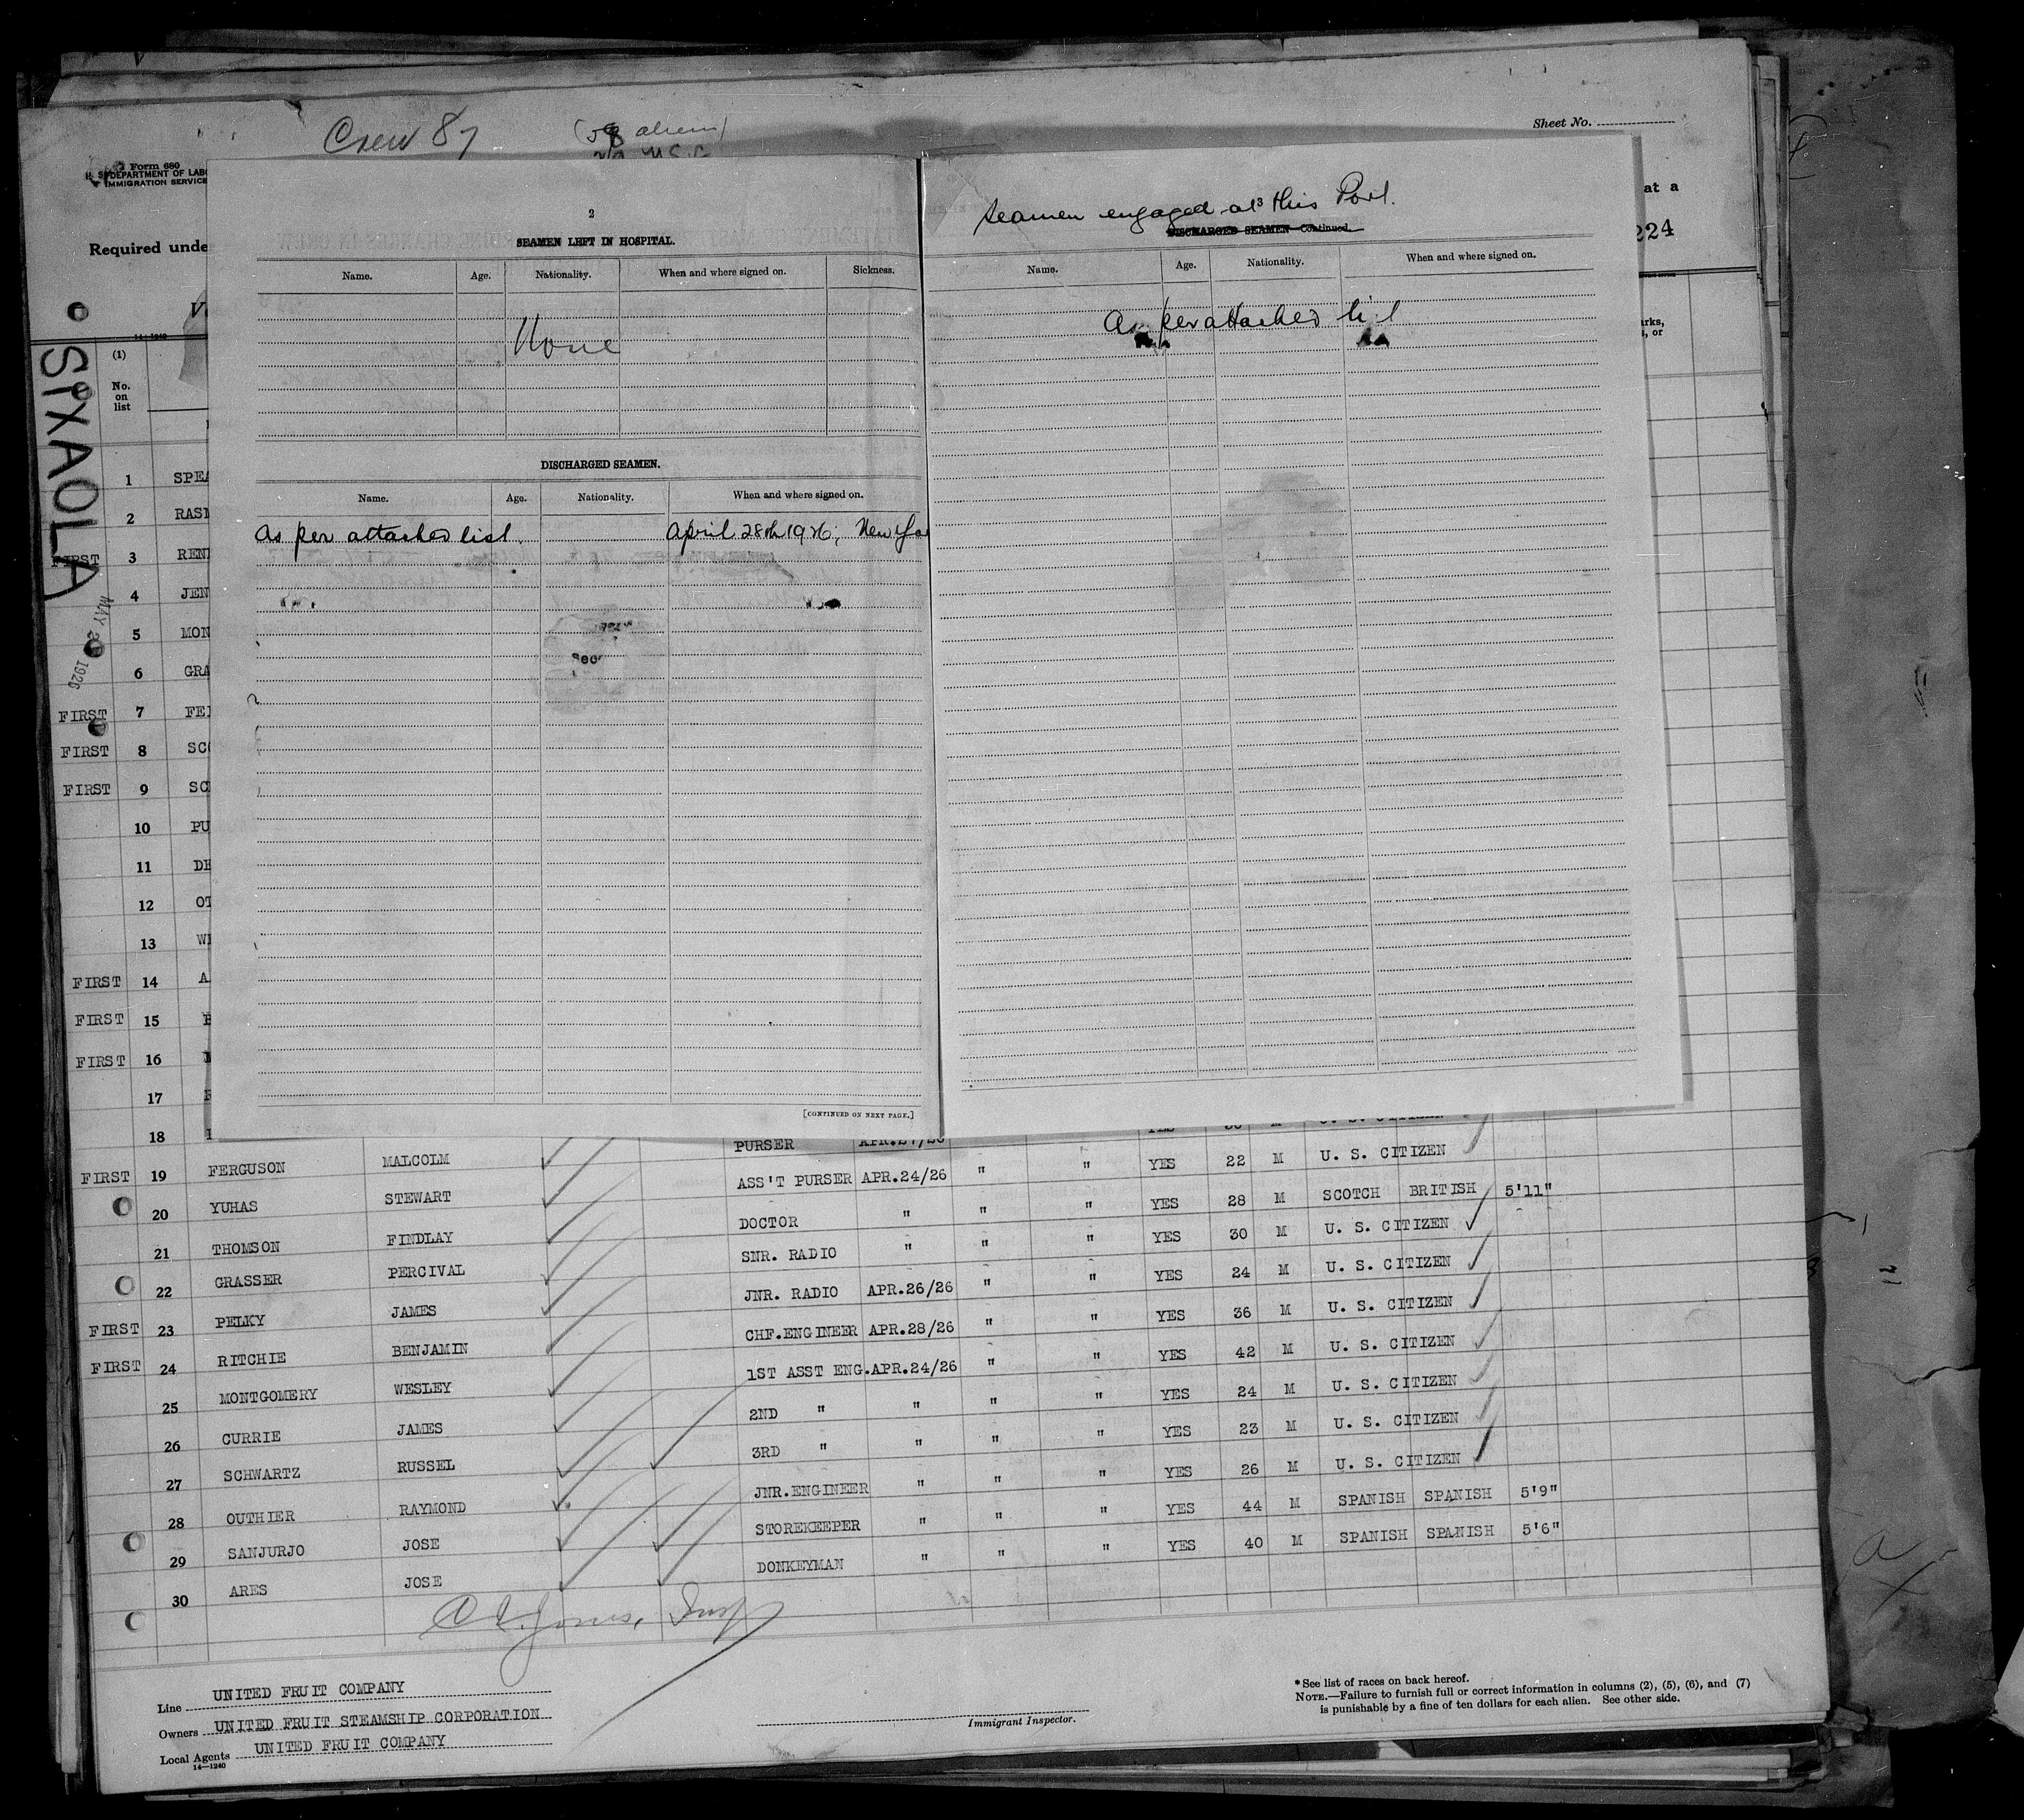 Crew 87
Sheet No.
Form 680
U. S. DEPARTMENT OF LABO
IMMIGRATION SERVICE
at a
224
Required unde
SIXAOLA
MAY 1926
14-1240
(1)
No. on list
2
SEAMEN LEFT IN HOSPITAL.
Name. Age. Nationality. When and where signed on. Sickness.
None
DISCHARGED SEAMEN.
Name. Age. Nationality. When and where signed on.
As per attached list. April 28th 1926, New Yo
[CONTINUED ON NEXT PAGE.]
Seamen engaged at this Port.
3
DISCHARGED SEAMEN—Continued.
Name. Age. Nationality. When and where signed on.
As per attached list
1 SPEA
2 RASM
FIRST 3 REN
4 JEN
5 MON
6 GRA
FIRST 7 FE
FIRST 8 SC
FIRST 9 SC
10 PU
11 DE
12 OT
13 W
FIRST 14 A
FIRST 15
FIRST 16
17
18
FIRST 19 FERGUSON MALCOLM PURSER APR.27/26 YES 30 M U. S. CITIZEN
20 YUHAS STEWART ASS'T PURSER APR.24/26 " " YES 22 M U. S. CITIZEN
21 THOMSON FINDLAY DOCTOR " " " YES 28 M SCOTCH BRITISH 5'11"
22 GRASSER PERCIVAL SNR. RADIO " " " YES 30 M U. S. CITIZEN
FIRST 23 PELKY JAMES JNR. RADIO APR.26/26 " " YES 24 M U. S. CITIZEN
FIRST 24 RITCHIE BENJAMIN CHF.ENGINEER APR.28/26 " " YES 36 M U. S. CITIZEN
25 MONTGOMERY WESLEY 1ST ASST ENG.APR.24/26 " " YES 42 M U. S. CITIZEN
26 CURRIE JAMES 2ND " " " " YES 24 M U. S. CITIZEN
27 SCHWARTZ RUSSEL 3RD " " " " YES 23 M U. S. CITIZEN
28 OUTHIER RAYMOND JNR.ENGINEER " " " YES 26 M U. S. CITIZEN
29 SANJURJO JOSE STOREKEEPER " " " YES 44 M SPANISH SPANISH 5'9"
30 ARES JOSE DONKEYMAN " " " YES 40 M SPANISH SPANISH 5'6"
Line UNITED FRUIT COMPANY
Owners UNITED FRUIT STEAMSHIP CORPORATION
Local Agents UNITED FRUIT COMPANY
14—1240
Immigrant Inspector.
*See list of races on back hereof.
NOTE.—Failure to furnish full or correct information in columns (2), (5), (6), and (7)
is punishable by a fine of ten dollars for each alien. See other side.